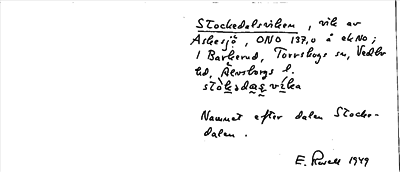 Stockedalsviken, vik av
Askesjö, ONO 137,0 å ekNo;
1 Barkerud, Torrskogs sn, Vedbo
hd, Älvsborgs l.
Namnet efter dalen Stocke-
dalen.
E. Rosell 1949